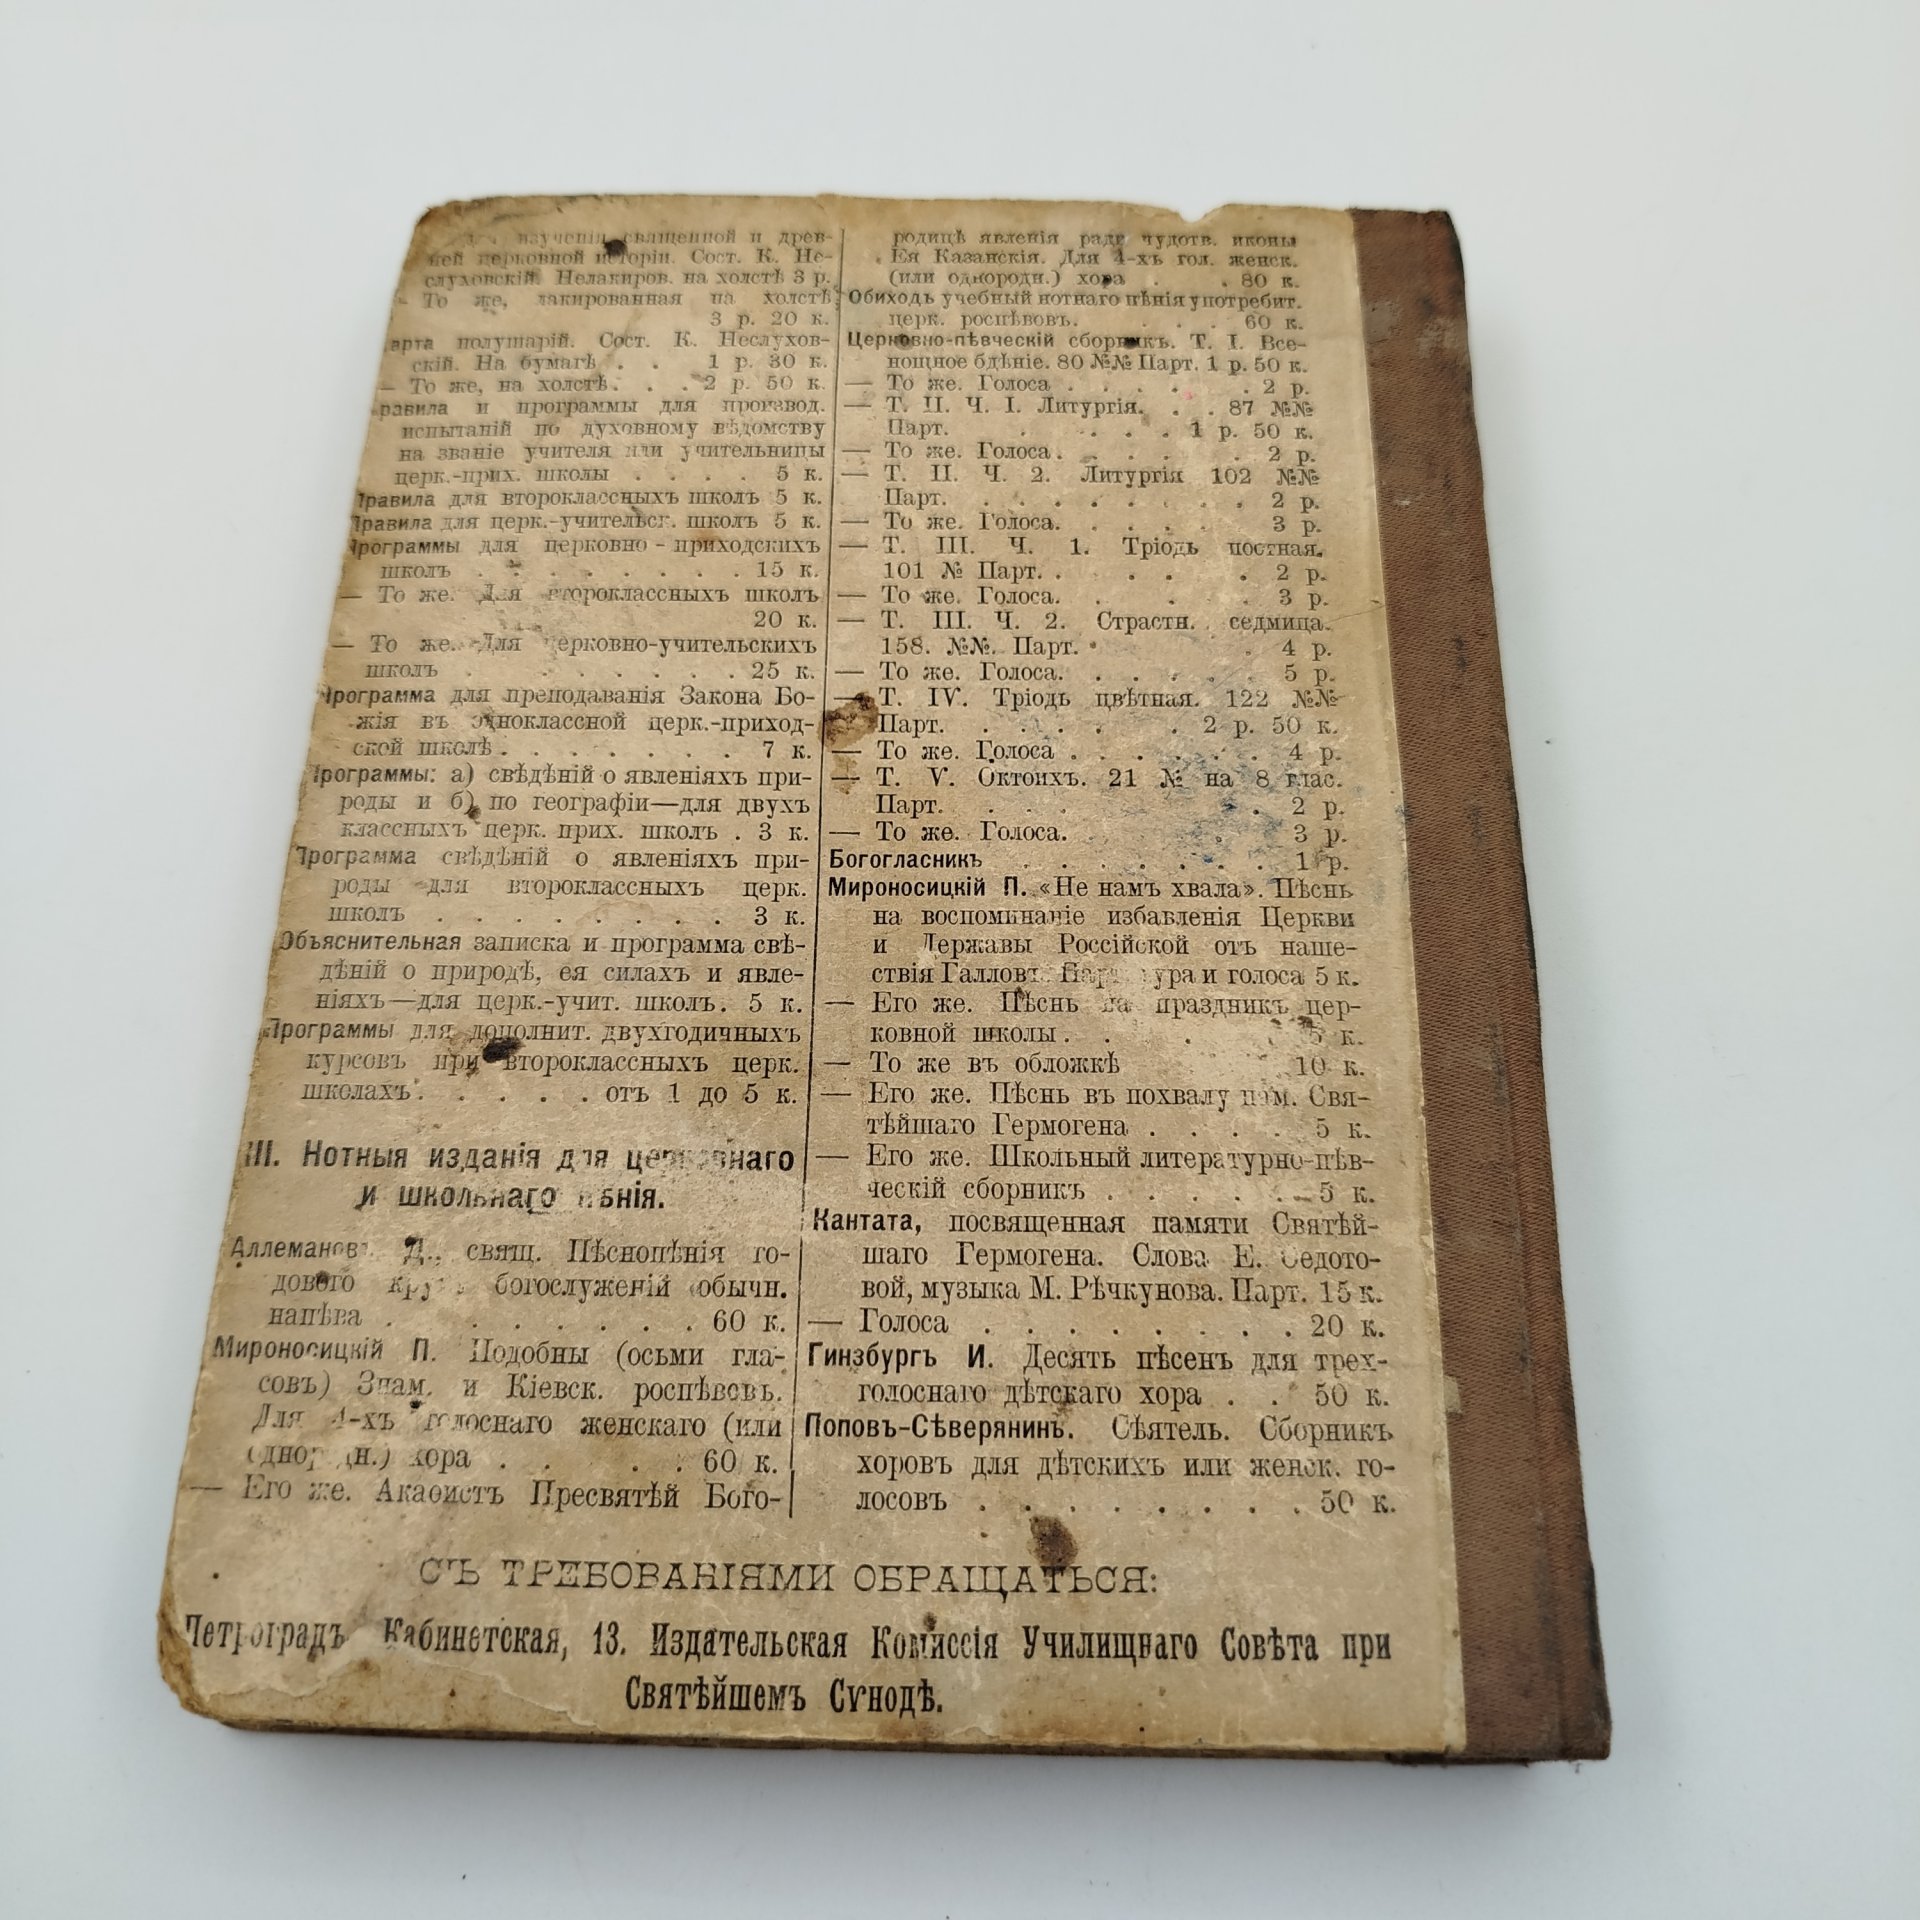 изученія священной и древ-
ней церковной исторіи. Сост. К. Не-
слуховскій. Нелакиров. на холстѣ 3 р.
— То же, лакированная на холстѣ
3 р. 20 к.
арта полушарій. Сост. К. Неслухов-
скій. На бумагѣ . . 1 р. 30 к.
— То же, на холстѣ. . . 2 р. 50 к.
равила и программы для производ.
испытаній по духовному вѣдомству
на званіе учителя или учительницы
церк.-прих. школы . . . . 5 к.
Правила для второклассныхъ школъ 5 к.
Правила для церк.-учительск. школъ 5 к.
Программы для церковно-приходскихъ
школъ . . . . . . . . 15 к.
— То же. Для второклассныхъ школъ
20 к.
— То же. Для церковно-учительскихъ
школъ . . . . . . . . 25 к.
Программа для преподаванія Закона Бо-
жія въ одноклассной церк.-приход-
ской школѣ . . . . . . . 7 к.
Программы: а) свѣдѣній о явленіяхъ при-
роды и б) по географіи—для двухъ
классныхъ церк. прих. школъ . 3 к.
Программа свѣдѣній о явленіяхъ при-
роды для второклассныхъ церк.
школъ . . . . . . . . 3 к.
Объяснительная записка и программа свѣ-
дѣній о природѣ, ея силахъ и явле-
ніяхъ—для церк.-учит. школъ. 5 к.
Программы для дополнит. двухгодичныхъ
курсовъ при второклассныхъ церк.
школахъ . . . . . отъ 1 до 5 к.
III. Нотныя изданія для церковнаго
и школьнаго пѣнія.
Аллемановъ Д., свящ. Пѣснопѣнія го-
дового круга богослуженій обычн.
напѣва . . . . . . . . 60 к.
Мироносицкій П. Подобны (осьми гла-
совъ) Знам. и Кіевск. роспѣвовъ.
Для 4-хъ голоснаго женскаго (или
однородн.) хора . . . . . 60 к.
— Его же. Акаѳистъ Пресвятѣй Бого-
родицѣ явленія ради чудотв. иконы
Ея Казанскія. Для 4-хъ гол. женск.
(или однородн.) хора . . 80 к.
Обиходъ учебный нотнаго пѣнія употребит.
церк. роспѣвовъ. . . . . 60 к.
Церковно-пѣвческій сборникъ. Т. I. Все-
нощное бдѣніе. 80 №№ Парт. 1 р. 50 к.
— То же. Голоса . . . . . 2 р.
— Т. II. Ч. I. Литургія. . . 87 №№
Парт. . . . . 1 р. 50 к.
— То же. Голоса . . . . . 2 р.
— Т. II. Ч. 2. Литургія 102 №№
Парт. . . . . . . . . 2 р.
— То же. Голоса. . . . . 3 р.
— Т. III. Ч. 1. Тріодь постная.
101 № Парт. . . . . . 2 р.
— То же. Голоса. . . . . 3 р.
— Т. III. Ч. 2. Страстн. седмица.
158. №№. Парт. . . 4 р.
— То же. Голоса. . . . . . 5 р.
— Т. IV. Тріодь цвѣтная. 122 №№
Парт. . . . . . 2 р. 50 к.
— То же. Голоса . . . . . . 4 р.
— Т. V. Октоихъ. 21 № на 8 глас.
Парт. . . . . . . . 2 р.
— То же. Голоса. . . . . 3 р.
Богогласникъ . . . . . . . 1 р.
Мироносицкій П. «Не намъ хвала». Пѣснь
на воспоминаніе избавленія Церкви
и Державы Россійской отъ наше-
ствія Галловъ. Партитура и голоса 5 к.
— Его же. Пѣснь на праздникъ цер-
ковной школы . . . . . 5 к.
— То же въ обложкѣ 10 к.
— Его же. Пѣснь въ похвалу пам. Свя-
тѣйшаго Гермогена . . . . 5 к.
— Его же. Школьный литературно-пѣв-
ческій сборникъ . . . . . 5 к.
Кантата, посвященная памяти Святѣй-
шаго Гермогена. Слова Е. Федото-
вой, музыка М. Рѣчкунова. Парт. 15 к.
— Голоса . . . . . . . . 20 к.
Гинзбургъ И. Десять пѣсенъ для трех-
голоснаго дѣтскаго хора . . 50 к.
Поповъ-Сѣверянинъ. Сѣятель. Сборникъ
хоровъ для дѣтскихъ или женск. го-
лосовъ . . . . . . . . 50 к.
СЪ ТРЕБОВАНІЯМИ ОБРАЩАТЬСЯ:
Петроградъ Кабинетская, 13. Издательская Комиссія Училищнаго Совѣта при
Святѣйшемъ Сѵнодѣ.